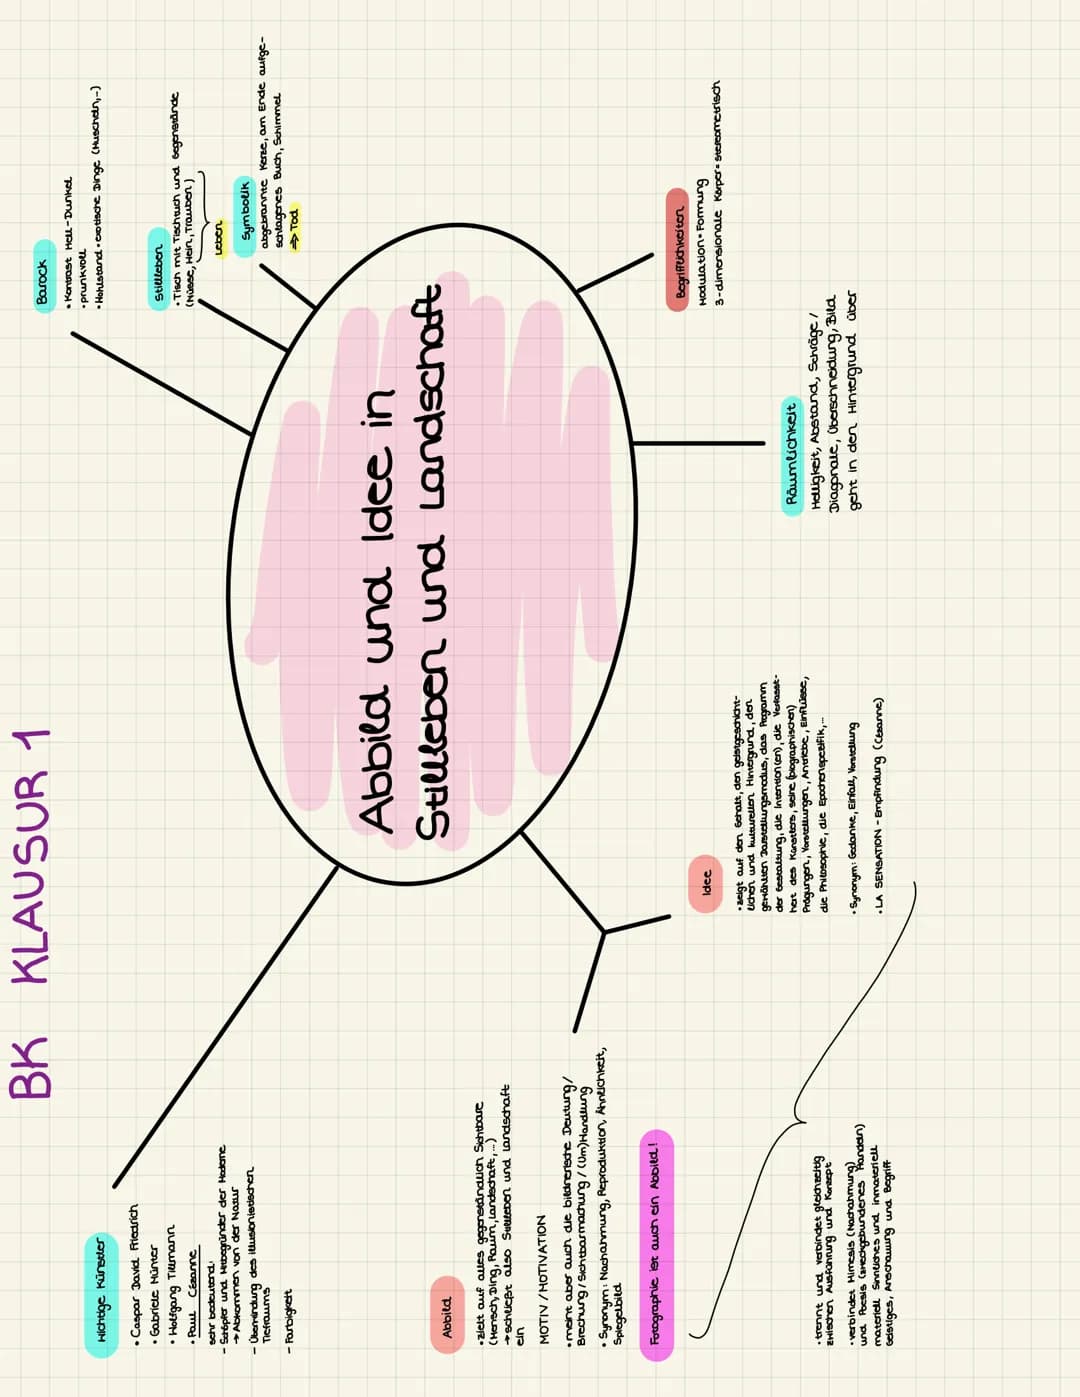 BK KLAUSUR 1
Abbild und Idee in
Stillleben und Landschaft
Wichtige Künstler
• Caspar David Friedrich
• Gabriele Münter
• Wolfgang Tillmann
• Paul Cézanne
sehr bedeutend:
- Schöpfer und Mitbegründer der Moderne
→ Abkommen von der Natur
- Überwindung des illusionistischen
Tiefraums
- Farbigkeit
Barock
• Kontrast Hell-Dunkel
• prunkvoll
• Wohlstand → exotische Dinge (Muscheln,...)
Stillleben
• Tisch mit Tischtuch und Gegenstände
(Nüsse, Wein, Trauben)
Leben
Symbolik
abgebrannte Kerze, am Ende aufge-
schlagenes Buch, Schimmel
⇒ Tod
Abbild
• zielt auf alles gegenständlich Sichtbare
(Mensch, Ding, Raum, Landschaft,...)
→ schließt also Stillleben und Landschaft
ein
MOTIV / MOTIVATION
• meint aber auch die bildnerische Deutung/
Brechung / Sichtbarmachung / (Um)Handlung
• Synonym: Nachahmung, Reproduktion, Ähnlichkeit,
Spiegelbild
Fotographie ist auch ein Abbild!
Idee
• zeigt auf den Gehalt, den geistgeschicht-
lichen und kulturellen Hintergrund, den
gewählten Darstellungsmodus, das Programm
der Gestaltung, die Intention(en), die Verfasst-
heit des Künstlers, seine (biographischen)
Prägungen, Vorstellungen, Antriebe, Einflüsse,
die Philosophie, die Epochenspezifik,...
• Synonym: Gedanke, Einfall, Vorstellung
• LA SENSATION - Empfindung (Cézanne)
• trennt und verbindet gleichzeitig
zwischen Ausführung und Konzept
• verbindet Mimesis (Nachahmung)
und Poesis (zweckgebundenes Handeln)
materiell Sinnliches und inmateriell
Geistiges, Anschauung und Begriff
Räumlichkeit
Helligkeit, Abstand, Schräge/
Diagonale, Überschneidung, Bild
geht in den Hintergrund über
Begrifflichkeiten
Modulation = Formung
3-dimensionale Körper = stereometrisch